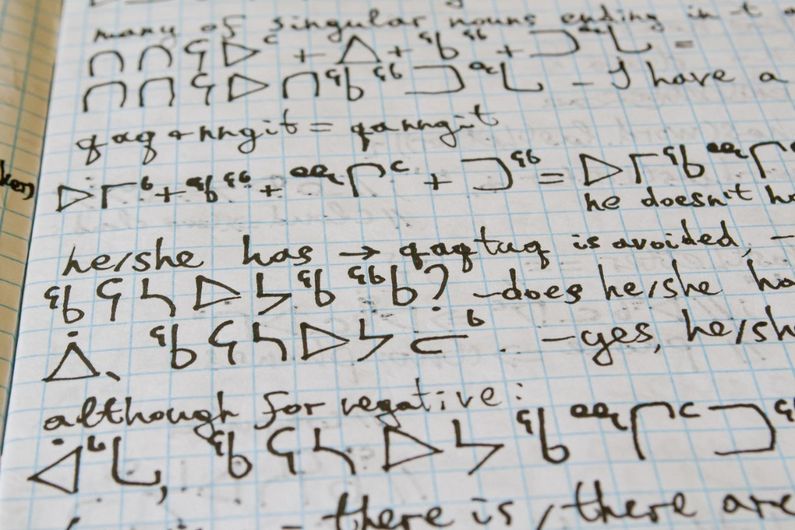 many of singular nouns ending in -t
ᑎᑎᕋᐅᑦ + ᐃ + ᖃᖅ + ᑐᙵ =
ᑎᑎᕋᐅᑎᖃᖅᑐᙵ – I have a
qaq + nngit = qanngit
ᐅᒥᒃ + ᖃᖅ + ᙱᑦ + ᑐᖅ = ᐅᒥᖃᙱ
he doesn't
he/she has → qaqtuq is avoided, –
ᖃᕋᓴᐅᔭᖃᖅᑲ? – does he/she
ᐄ, ᖃᕋᓴᐅᔭᓕᒃ. – yes, he/she
although for negative:
ᐋᒡᒐ, ᖃᕋᓴᐅᔭᖃᙱᑦᑐᖅ
– there is / there are